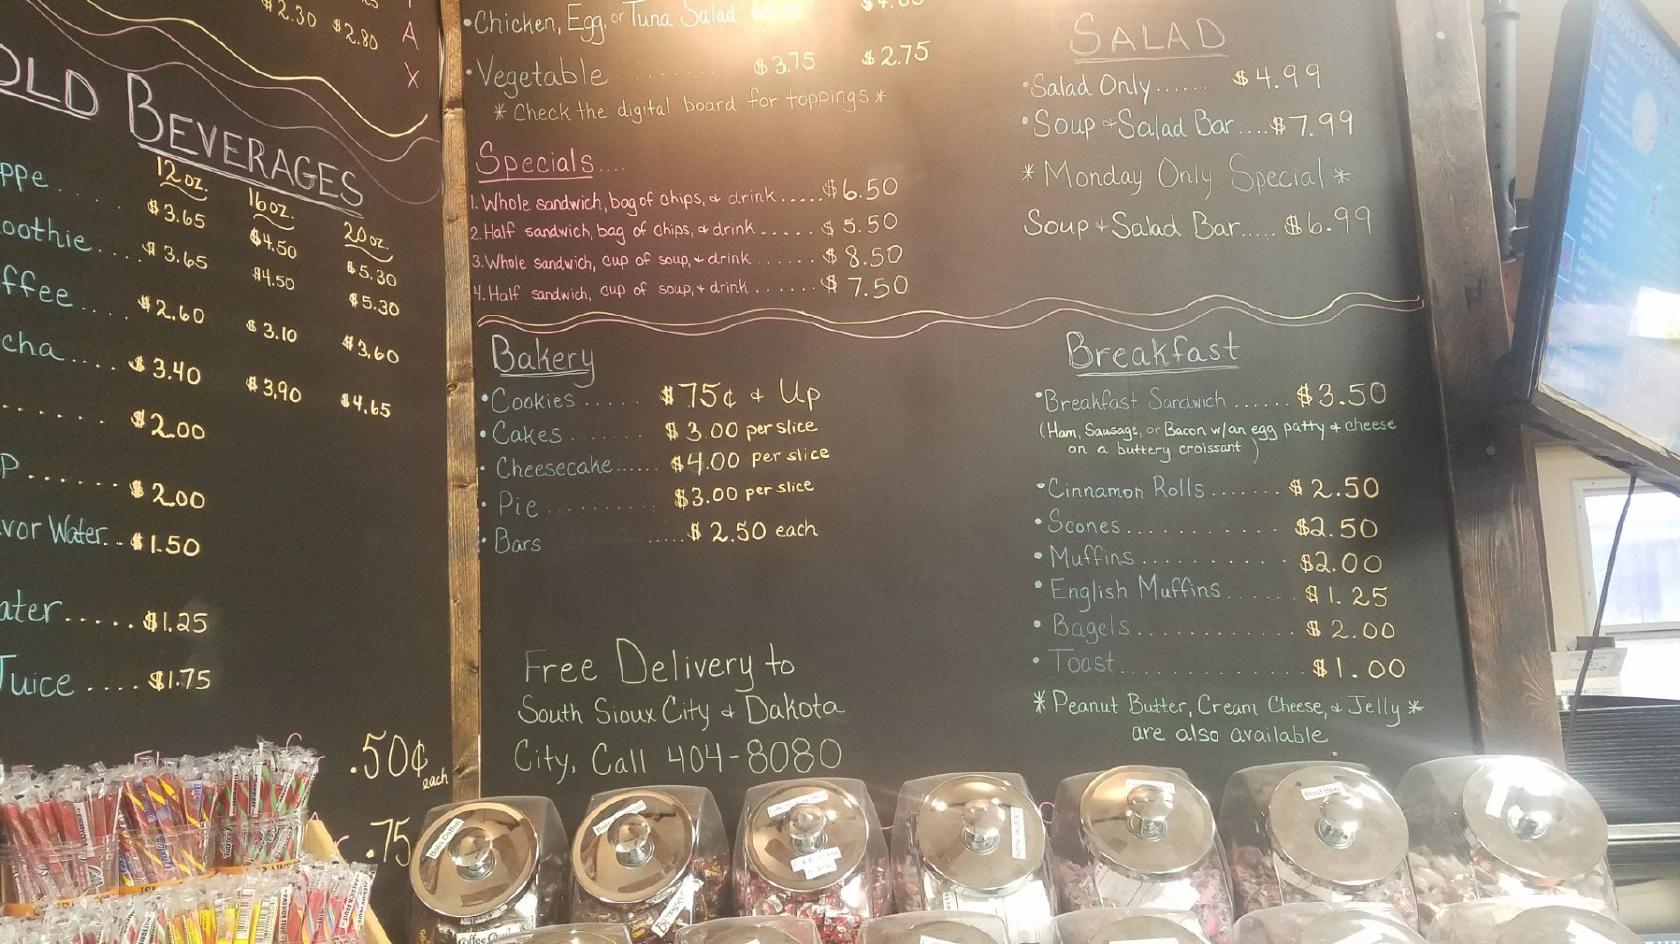 $2.30 $2.80
T
A
X
OLD BEVERAGES
12 oz. 16 oz. 20 oz.
ppe.... $3.65 $4.50 $5.30
oothie.... $3.65 $4.50 $5.30
ffee.... $2.60 $3.10 $3.60
cha.... $3.40 $3.90 $4.65
...... $2.00
P...... $2.00
vor Water.. $1.50
ater..... $1.25
Juice .... $1.75
.50¢ each
.75
• Chicken, Egg, or Tuna Salad
• Vegetable ........ $3.75 $2.75
* Check the digital board for toppings *
Specials....
1. Whole sandwich, bag of chips, & drink.....$6.50
2. Half sandwich, bag of chips, & drink...... $ 5.50
3. Whole sandwich, cup of soup, & drink....... $ 8.50
4. Half sandwich, cup of soup, & drink....... $ 7.50
SALAD
• Salad Only...... $4.99
• Soup & Salad Bar....$7.99
* Monday Only Special *
Soup & Salad Bar..... $6.99
Bakery
• Cookies ...... $.75¢ & Up
• Cakes ....... $3.00 per slice
• Cheesecake...... $4.00 per slice
• Pie .......... $3.00 per slice
• Bars .....$ 2.50 each
Free Delivery to
South Sioux City & Dakota
City, Call 404-8080
Breakfast
• Breakfast Sandwich ...... $3.50
(Ham, Sausage, or Bacon w/an egg patty & cheese
on a buttery croissant )
• Cinnamon Rolls ....... $ 2.50
• Scones............ $2.50
• Muffins........... $2.00
• English Muffins....... $1.25
• Bagels............ $ 2.00
• Toast............. $1.00
* Peanut Butter, Cream Cheese, & Jelly *
are also available